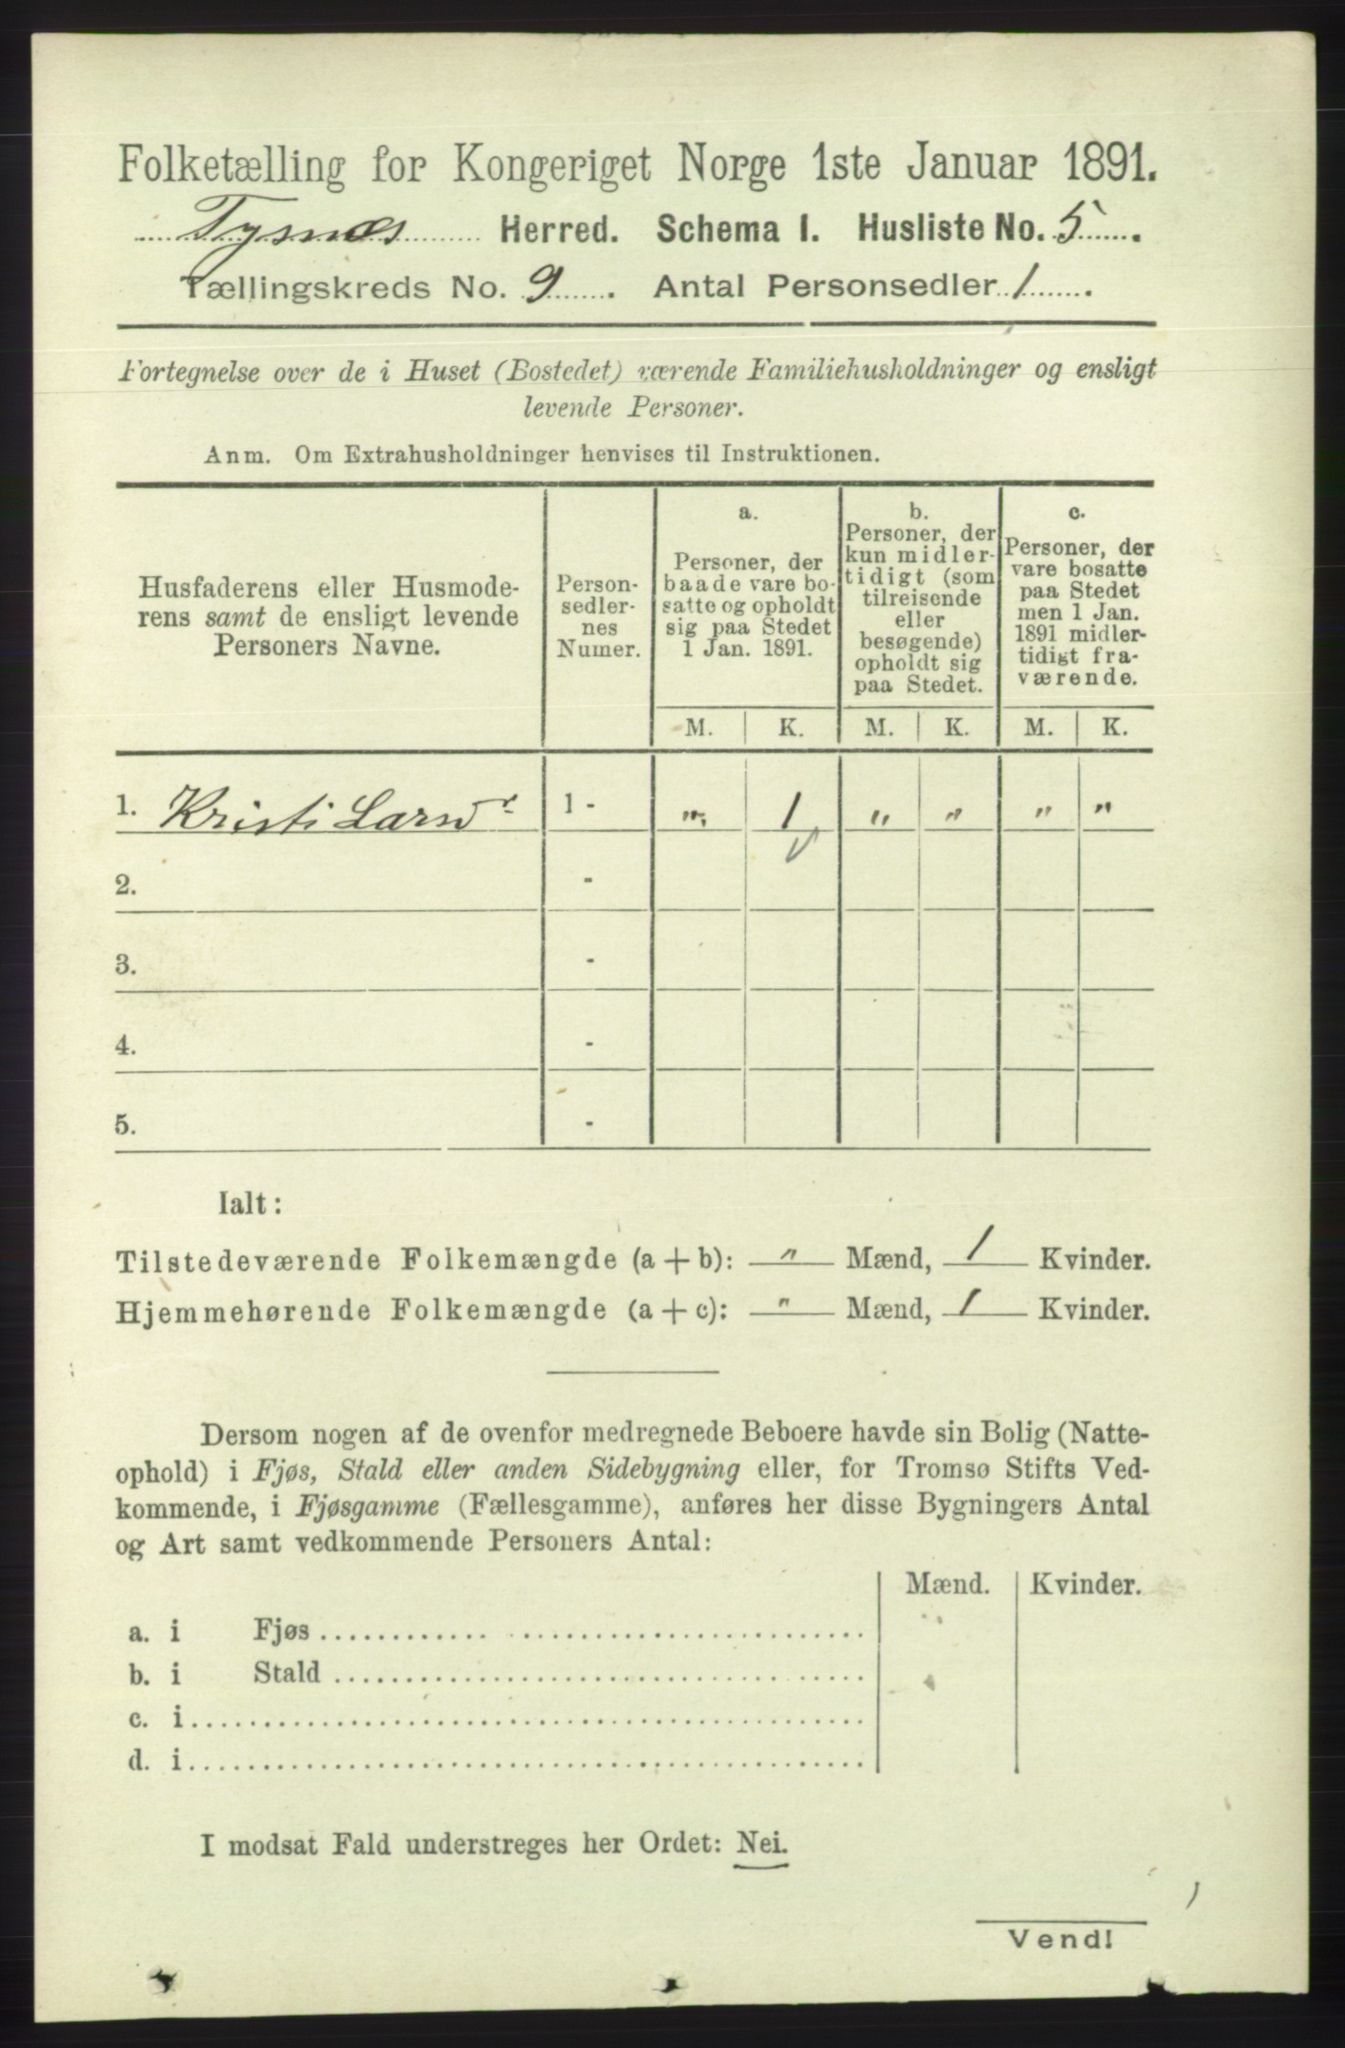 Folketælling for Kongeriget Norge 1ste Januar 1891.
Tysnæs Herred. Schema I. Husliste No. 5.
Tællingskreds No. 9. Antal Personsedler 1.
Fortegnelse over de i Huset (Bostedet) værende Familiehusholdninger og ensligt
levende Personer.
Anm. Om Extrahusholdninger henvises til Instruktionen.
Husfaderens eller Husmode-
rens samt de ensligt levende
Personers Navne.
Person-
sedler-
nes
Numer.
a.
Personer, der
baade vare bo-
satte og opholdt
sig paa Stedet
1 Jan. 1891.
b.
Personer, der
kun midler-
tidigt (som
tilreisende
eller
besøgende)
opholdt sig
paa Stedet.
c.
Personer, der
vare bosatte
paa Stedet
men 1 Jan.
1891 midler-
tidigt fra-
værende.
M. K. M. K. M. K.
1. Kristi Larsd. 1 - " 1 " " " "
2. -
3. -
4. -
5. -
Ialt:
Tilstedeværende Folkemængde (a + b): " Mænd, 1 Kvinder.
Hjemmehørende Folkemængde (a + c): " Mænd, 1 Kvinder.
Dersom nogen af de ovenfor medregnede Beboere havde sin Bolig (Natte-
ophold) i Fjøs, Stald eller anden Sidebygning eller, for Tromsø Stifts Ved-
kommende, i Fjøsgamme (Fællesgamme), anføres her disse Bygningers Antal
og Art samt vedkommende Personers Antal:
Mænd. Kvinder.
a. i Fjøs
b. i Stald
c. i
d. i
I modsat Fald understreges her Ordet: Nei.
Vend!